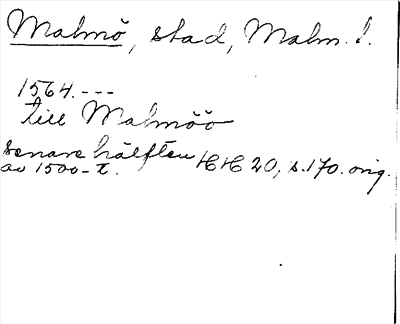 Malmö, stad, Malm. l.
1564. ---
till Malmöö
senare hälften HH 20, s. 170. orig.
av 1500-t.